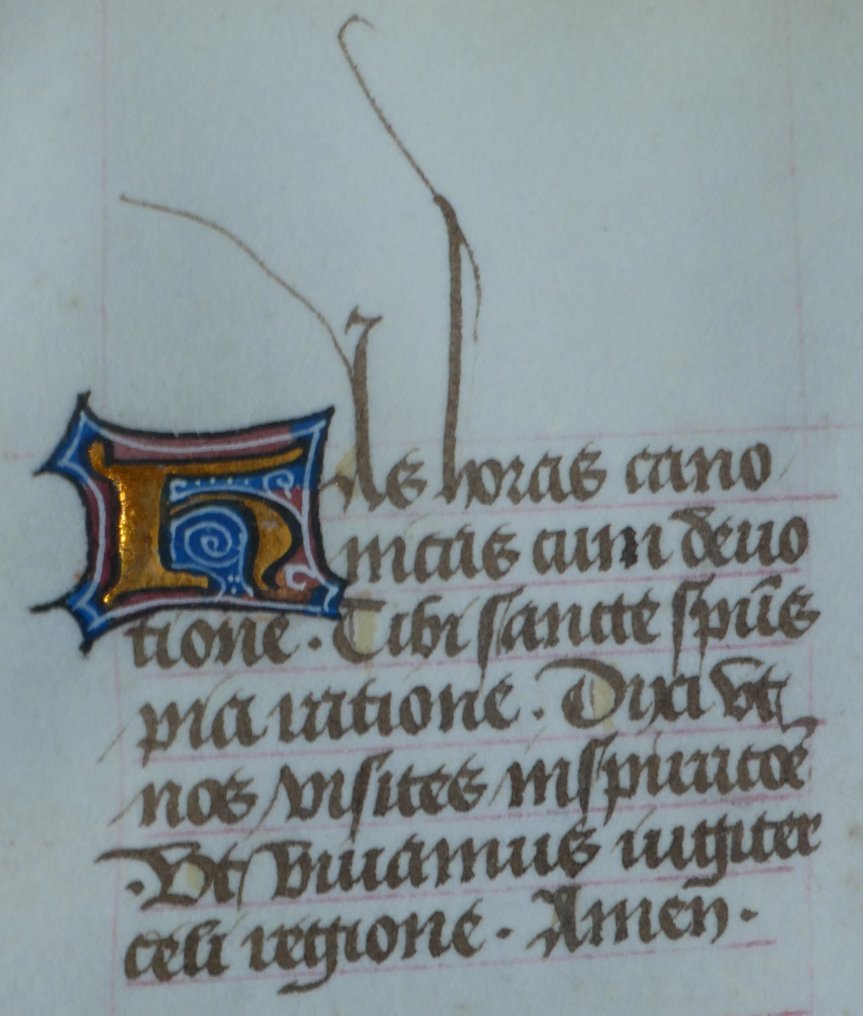 Has horas cano
nicas cum deuo
tione. Tibi sancte spūs
pia ratione. Dixi vt
nos visites inspiratōe
. Vt viuamus iugiter
celi regione. Amen.